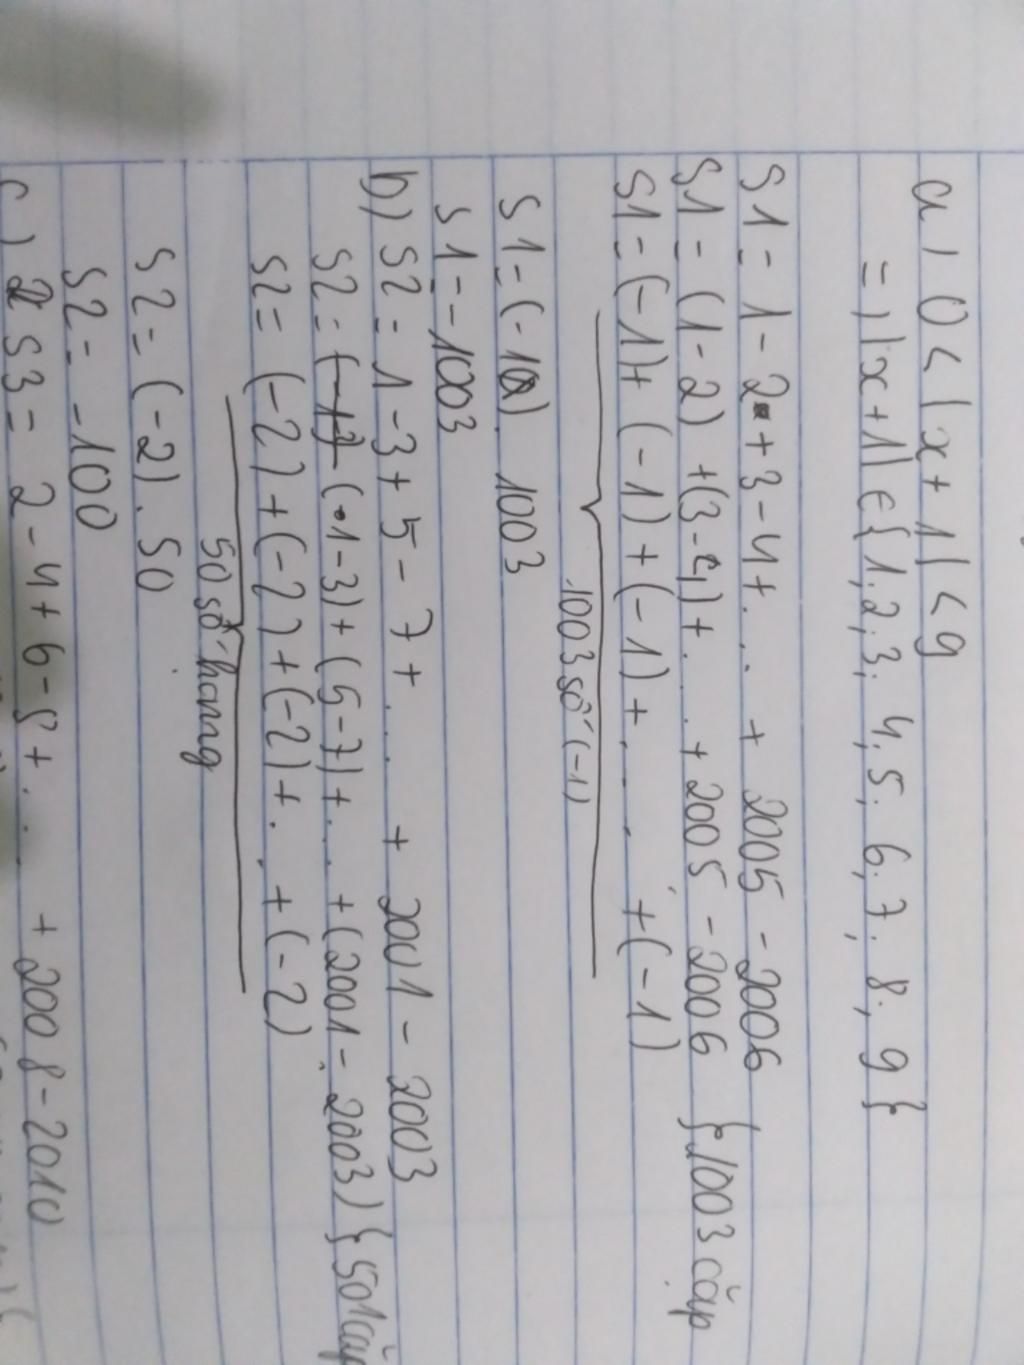 a) 0 < |x + 1| < 9
=) |x + 1| ∈ {1; 2; 3; 4; 5; 6; 7; 8; 9}
S1 = 1 - 2 + 3 - 4 + ... + 2005 - 2006
S1 = (1 - 2) + (3 - 4) + ... + 2005 - 2006 } 1003 cặp
S1 = (-1) + (-1) + (-1) + ... + (-1)
1003 số (-1)
S1 = (-1) . 1003
S1 = -1003
b) S2 = 1 - 3 + 5 - 7 + ... + 2001 - 2003
S2 = (1 - 3) + (5 - 7) + ... + (2001 - 2003) } 501 cặp
S2 = (-2) + (-2) + (-2) + ... + (-2)
50 số hang
S2 = (-2) . 50
S2 = -100
c) S3 = 2 - 4 + 6 - 8 + ... + 2008 - 2010